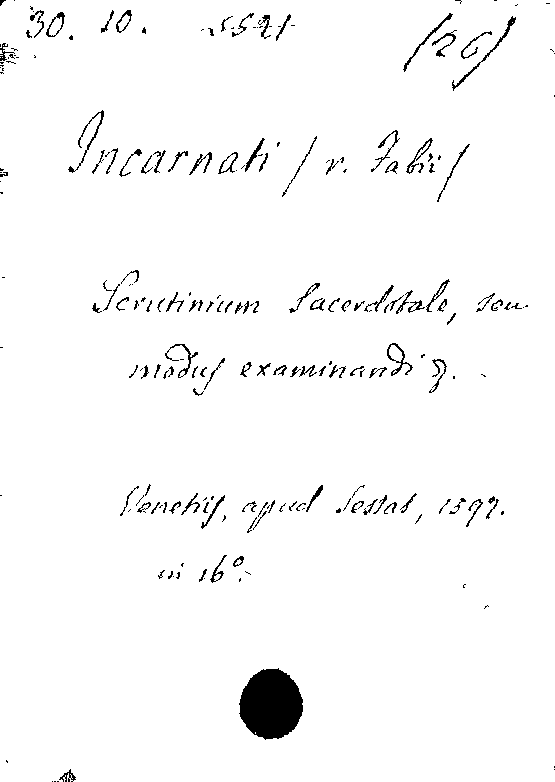 30. 10. 5521 (26)
Incarnati / v. Fabii /
Scrutinium Sacerdotale, seu
modus examinandi &.
Venetiis, apud Sessas, 1597.
in 16°.